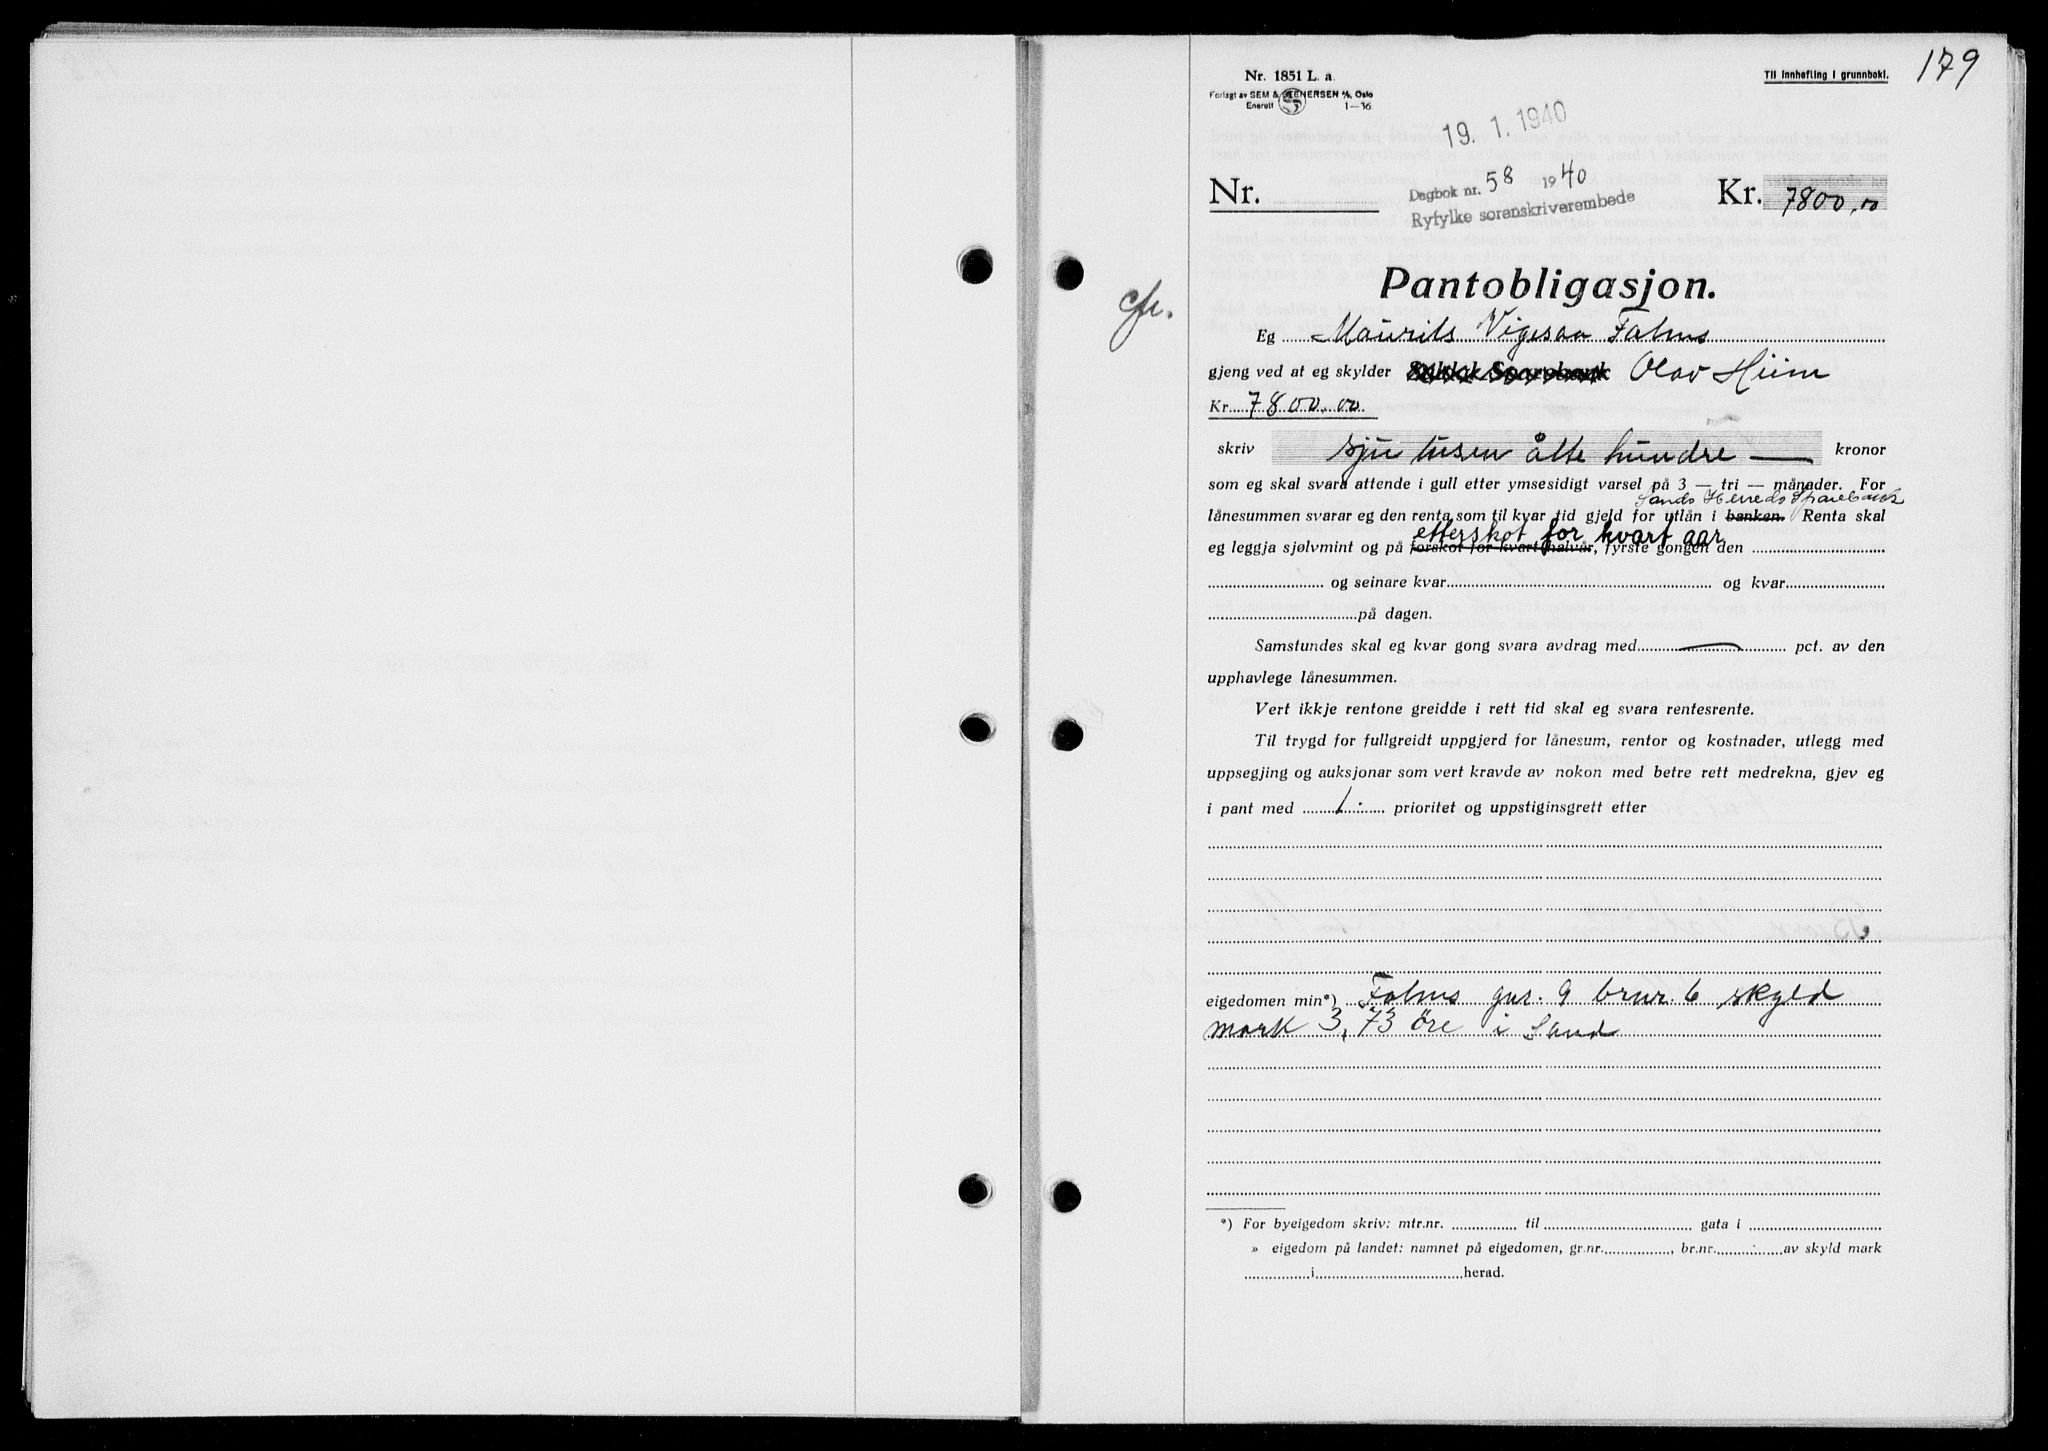 179
Nr. 1851 L. a.
Til innhefting i grunnboki.
Forlagt av SEM & STENERSEN A/S, Oslo
Enerett 1—36
19. 1. 1940
Nr.
Dagbok nr. 58 1940
Ryfylke sorenskriverembede
Kr. 7800,00
Pantobligasjon.
cfr.
Eg Maurits Vigesaa Fatnes
gjeng ved at eg skylder Olav Heim
Kr. 7800.00
skriv sju tusen åtte hundre — kronor
som eg skal svara attende i gull etter ymsesidigt varsel på 3 — tri — månader. For
Sands Herreds Sparebank
lånesummen svarar eg den renta som til kvar tid gjeld for utlån i banken. Renta skal
etterskot for kvart aar
eg leggja sjølvmint og på forskot for kvart halvår, fyrste gongen den
og seinare kvar og kvar
på dagen.
Samstundes skal eg kvar gong svara avdrag med — pct. av den
upphavlege lånesummen.
Vert ikkje rentone greidde i rett tid skal eg svara rentesrente.
Til trygd for fullgreidt uppgjerd for lånesum, rentor og kostnader, utlegg med
uppsegjing og auksjonar som vert kravde av nokon med betre rett medrekna, gjev eg
i pant med 1. prioritet og uppstiginsgrett etter
eigedomen min*) Fatnes gnr. 9 brnr. 6 skyld
mark 3,73 öre i Sand
*) For byeigedom skriv: mtr.nr. til gata i
» eigedom på landet: namnet på eigedomen, gr.nr. , br.nr. av skyld mark
i herad.